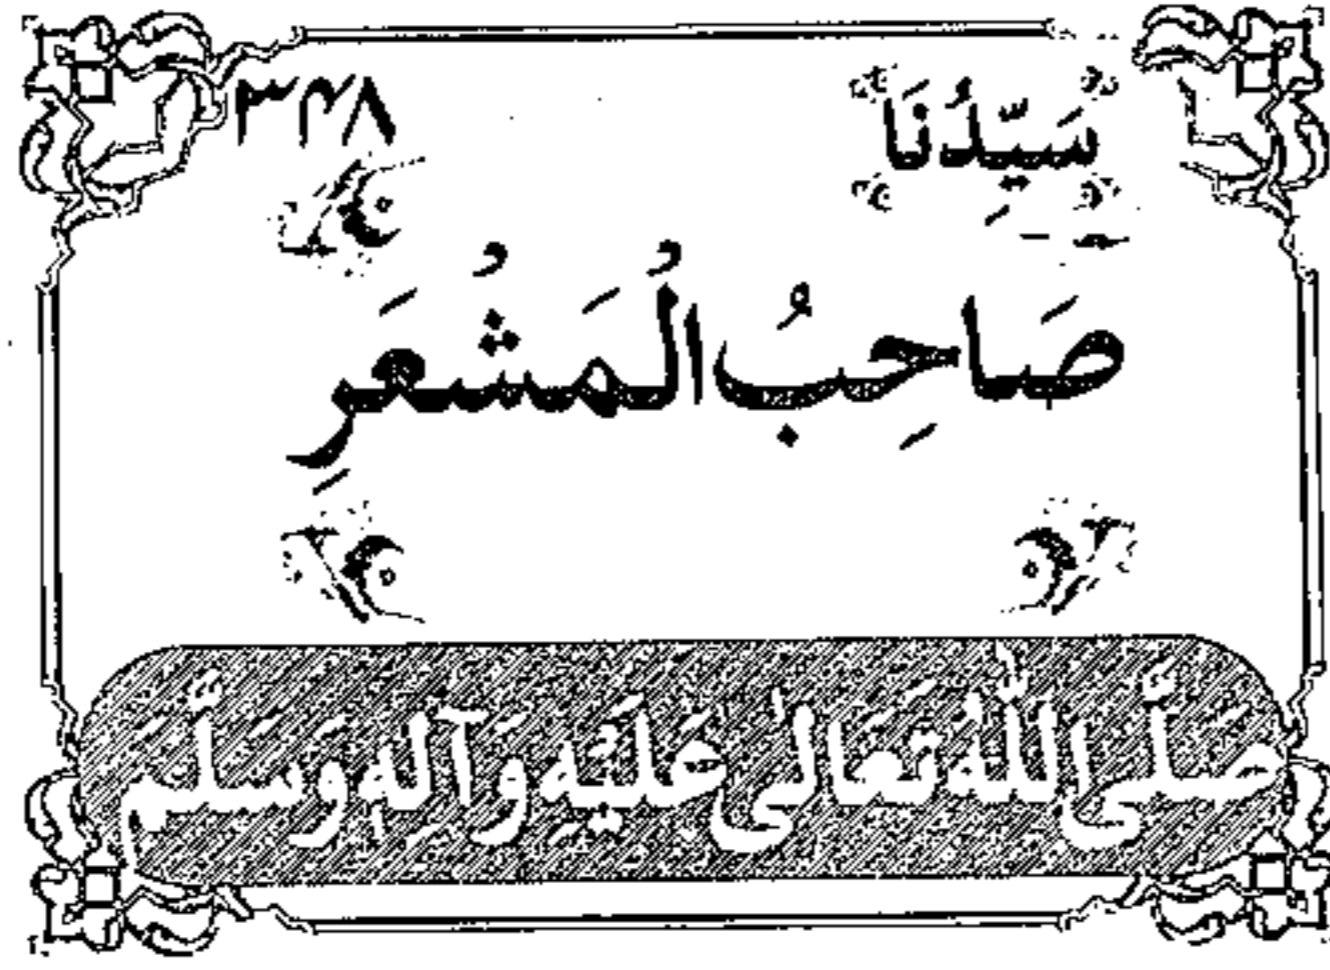 سَيِّدُنَا
صَاحِبُ الْمَشْعَرِ
صَلَّى اللّٰهُ تَعَالٰى عَلَيْهِ وَآلِهٖ وَسَلَّمَ